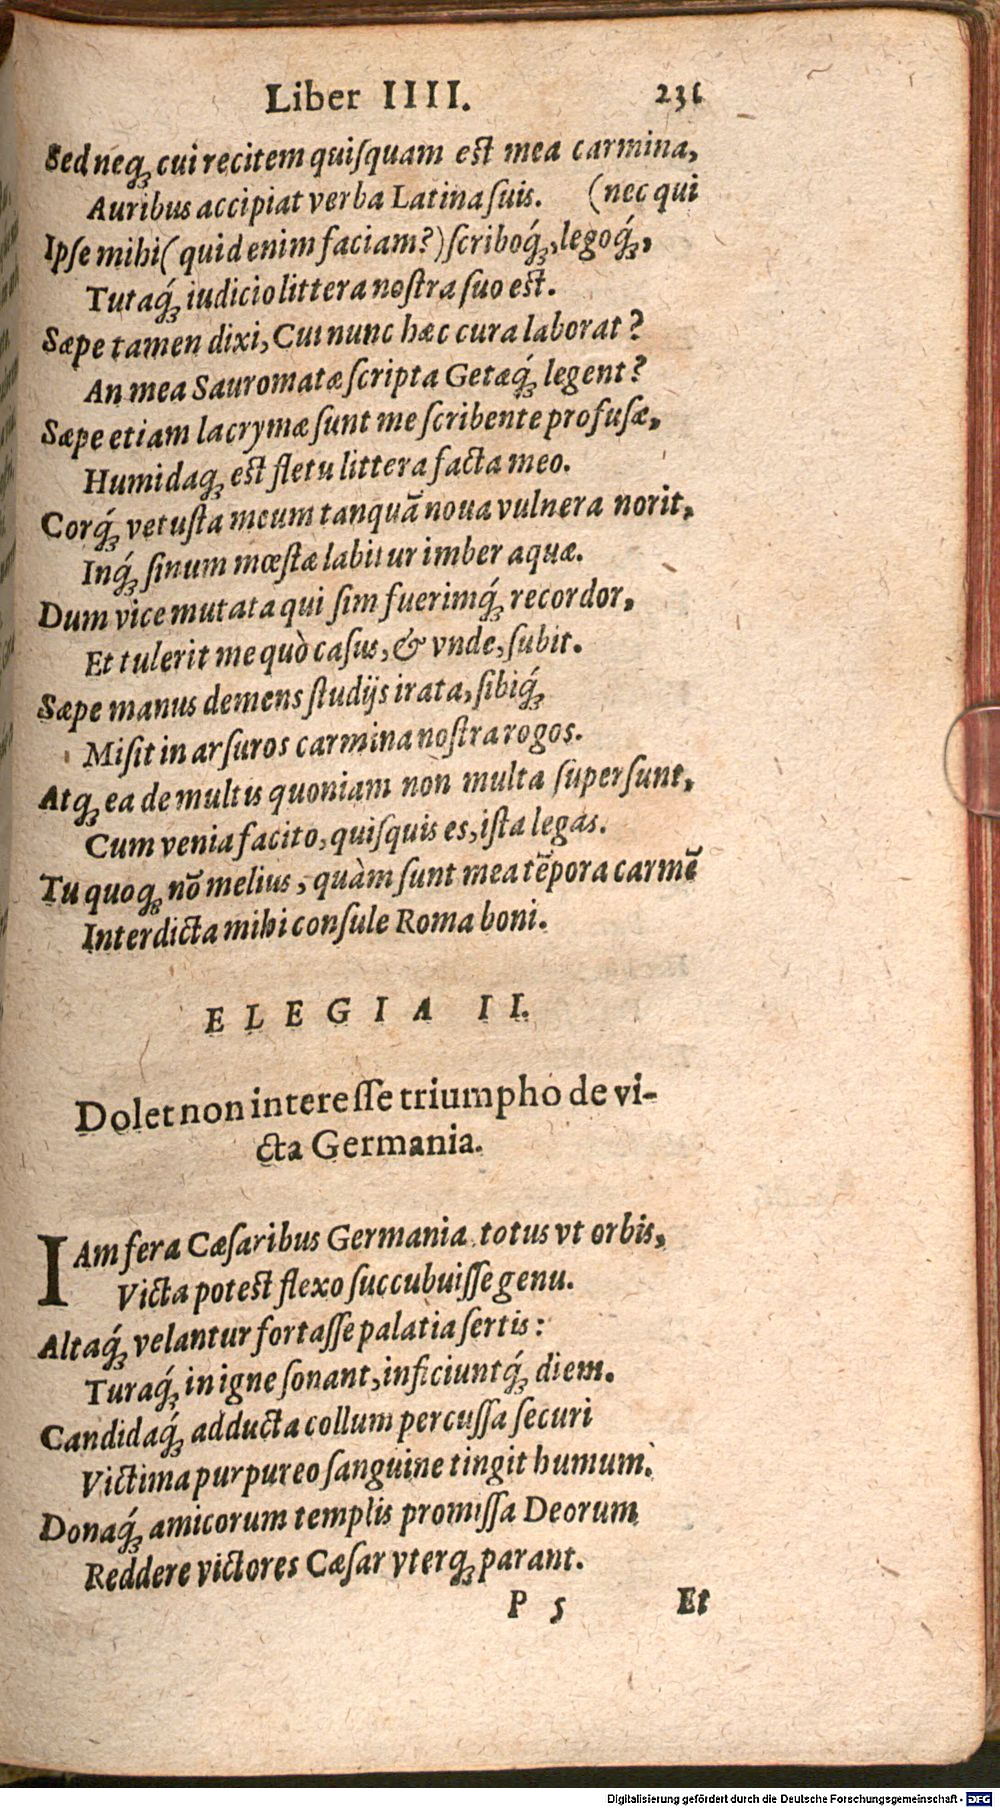 Liber IIII. 231
Sed neq́ꝫ cui recitem quiſquam eſt mea carmina,
Auribus accipiat verba Latina ſuis. (nec qui
Ipſe mihi (quid enim faciam?) ſcriboq́ꝫ, legoq́ꝫ,
Tutaq́ꝫ iudicio littera noſtra ſuo eſt.
Sæpe tamen dixi, Cui nunc hæc cura laborat?
An mea Sauromatæ ſcripta Getæq́ꝫ legent?
Sæpe etiam lacrymæ ſunt me ſcribente profuſæ,
Humidaqꝫ eſt fletu littera facta meo.
Corq́ꝫ vetuſta meum tanquā noua vulnera norit,
Inq́ꝫ ſinum mœſtæ labitur imber aquæ.
Dum vice mutata qui ſim fuerimq́ꝫ recordor,
Et tulerit me quò caſus, & vnde, ſubit.
Sæpe manus demens ſtudijs irata, ſibiq́ꝫ
Miſit in arſuros carmina noſtra rogos.
Atqꝫ ea de multis quoniam non multa ſuperſunt,
Cum venia facito, quiſquis es, iſta legas.
Tu quoqꝫ nō melius, quàm ſunt mea tēpora carmē
Interdicta mihi conſule Roma boni.
ELEGIA II.
Dolet non intereſſe triumpho de vi-
cta Germania.
IAm fera Cæſaribus Germania totus vt orbis,
Victa poteſt flexo ſuccubuiſſe genu.
Altaq́ꝫ velantur fortaſſe palatia ſertis:
Turaq́ꝫ in igne ſonant, inficiuntq́ꝫ diem.
Candidaq́ꝫ adducta collum percuſſa ſecuri
Victima purpureo ſanguine tingit humum.
Donaq́ꝫ amicorum templis promiſſa Deorum
Reddere victores Cæſar vterqꝫ parant.
P 5 Et
Digitalisierung gefördert durch die Deutsche Forschungsgemeinschaft - DFG